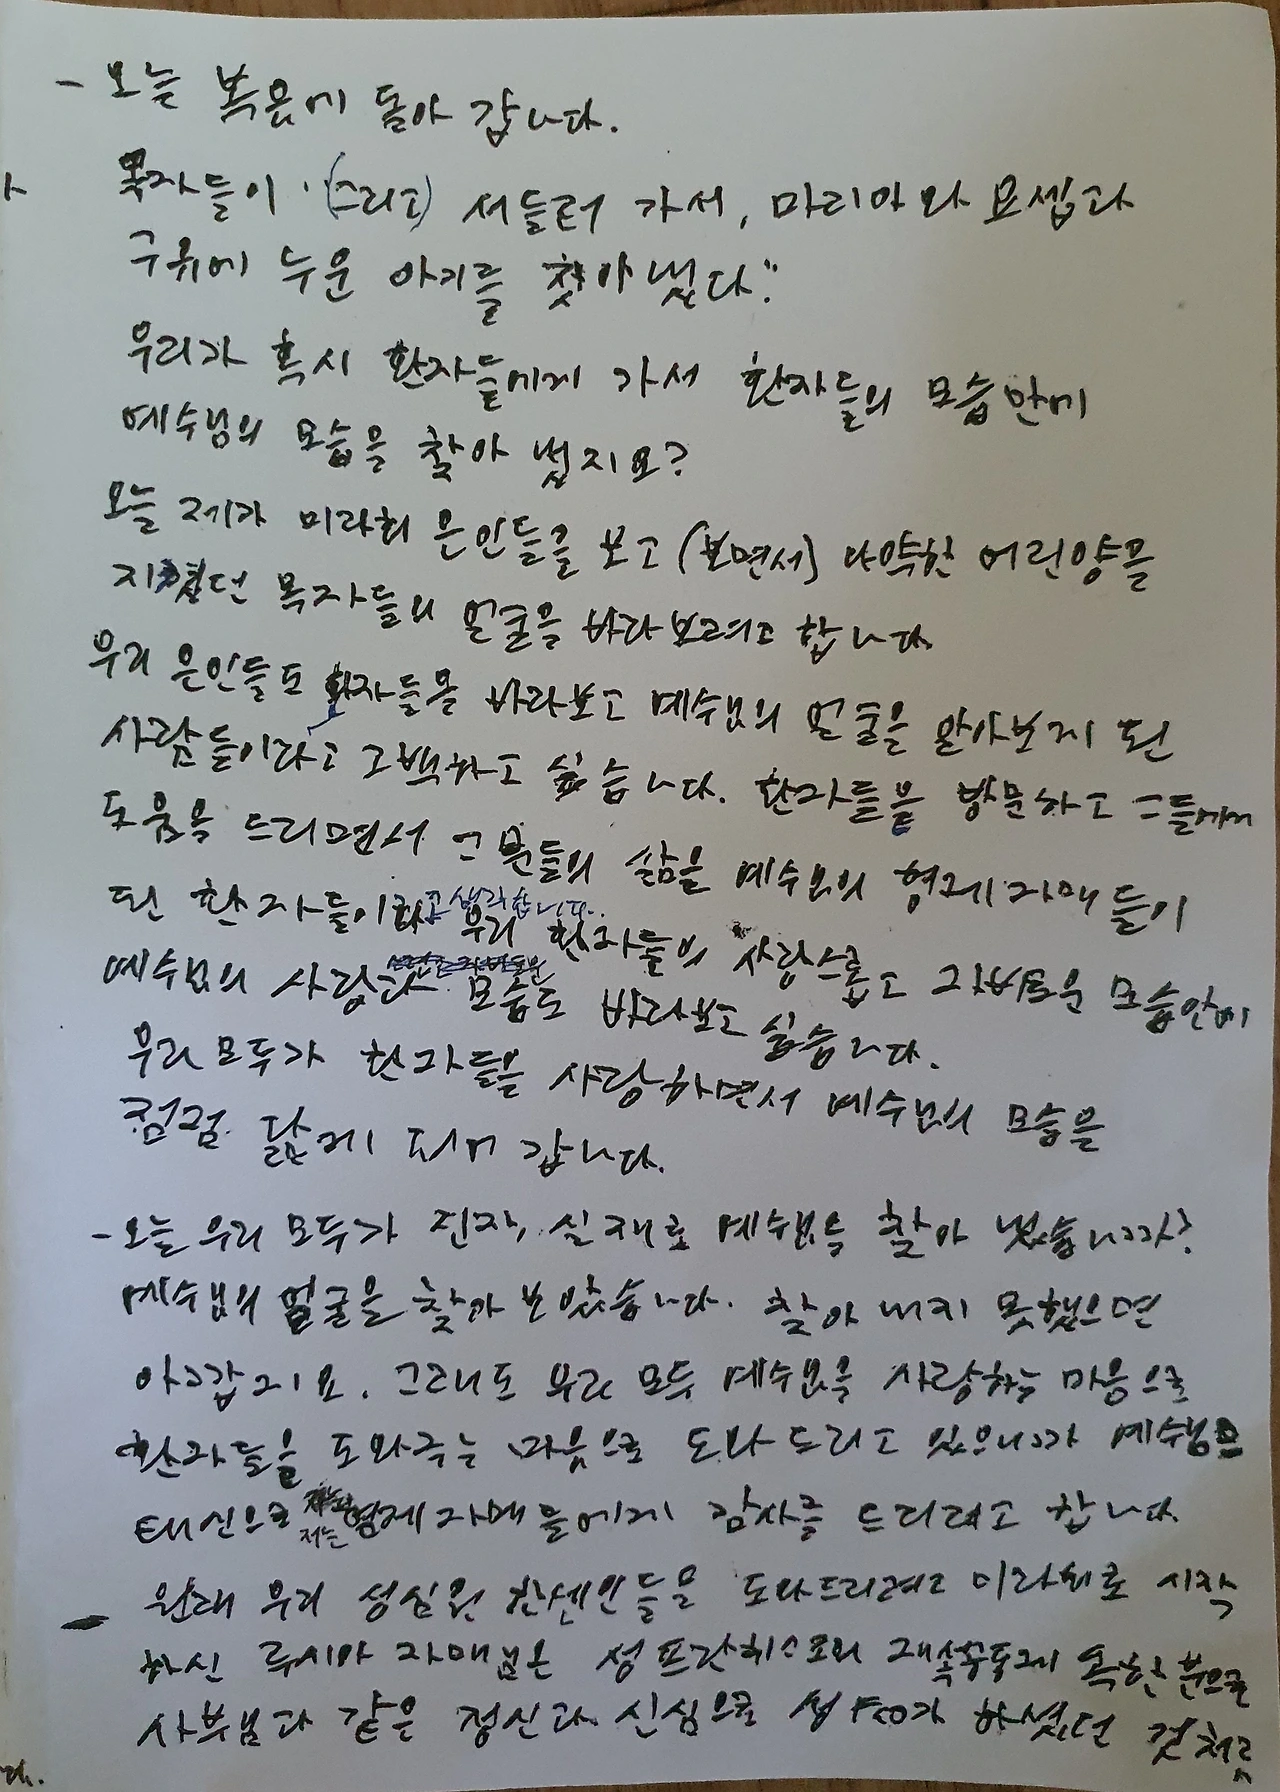 - 오늘 복음에 돌아 갑니다.
목자들이 "(그리고) 서둘러 가서, 마리아와 요셉과
구유에 누운 아기를 찾아 냈다."
우리가 혹시 환자들에게 가서 환자들의 모습안에
예수님의 모습을 찾아 냈지요?
오늘 제가 미라회 은인들을 보고 (보면서) 나약한 어린양을
지켰던 목자들의 얼굴을 바라보려고 합니다.
우리 은인들도 환자들을 바라보고 예수님의 얼굴을 알아보게 된
사람들이라고 고백하고 싶습니다. 환자들을 방문하고 그들에게
도움을 드리면서 그분들의 삶을 예수님의 형제 자매들이
된 환자들이라고 생각합니다. 우리 환자들의 사랑스럽고 자비로운 모습안에
예수님의 모습도 바라보고 싶습니다.
우리 모두가 환자들을 사랑하면서 예수님의 모습을
점점 닮게 되어 갑니다.
- 오늘 우리 모두가 진짜, 실재로 예수님을 찾아 냈습니까?
예수님의 얼굴을 찾아 보았습니다. 찾아 내지 못했으면
아깝지요. 그래도 우리 모두 예수님을 사랑하는 마음으로
환자들을 도와주는 마음으로 도와 드리고 있으니까 예수님
대신으로 저는 형제 자매들에게 감사를 드리려고 합니다.
- 원래 우리 성심원 한센인들을 도와드리려고 미라회로 시작
하신 루시아 자매님은 성프란치스코의 재속 속한 분으로
사부님과 같은 정신과 신심으로 하셨던 것처럼
다.